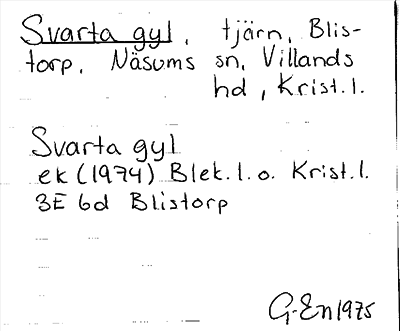 Svarta gyl, tjärn, Blis-
torp, Näsums sn, Villands
hd, Krist.l.
Svarta gyl
ek (1974) Blek.l.o. Krist.l.
3E 6d Blistorp
G.En 1975